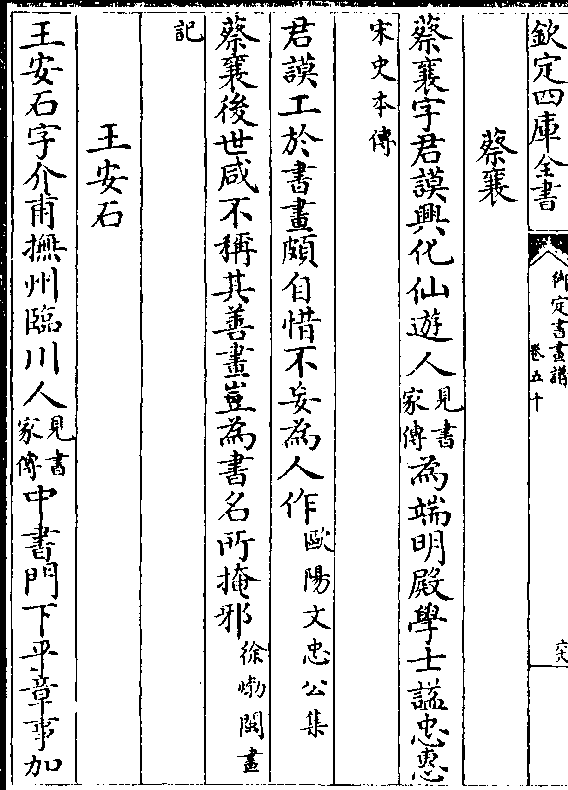 欽定四庫全書
御定書畫譜
卷五十
六八
蔡襄
蔡襄字君謨興化仙遊人見書家傳為端明殿學士諡忠惠
宋史本傳
君謨工於書畫頗自惜不妄為人作歐陽文忠公集
蔡襄後世咸不稱其善畫豈為書名所掩邪徐𤊹閩畫
記
王安石
王安石字介甫撫州臨川人見書家傳中書門下平章事加